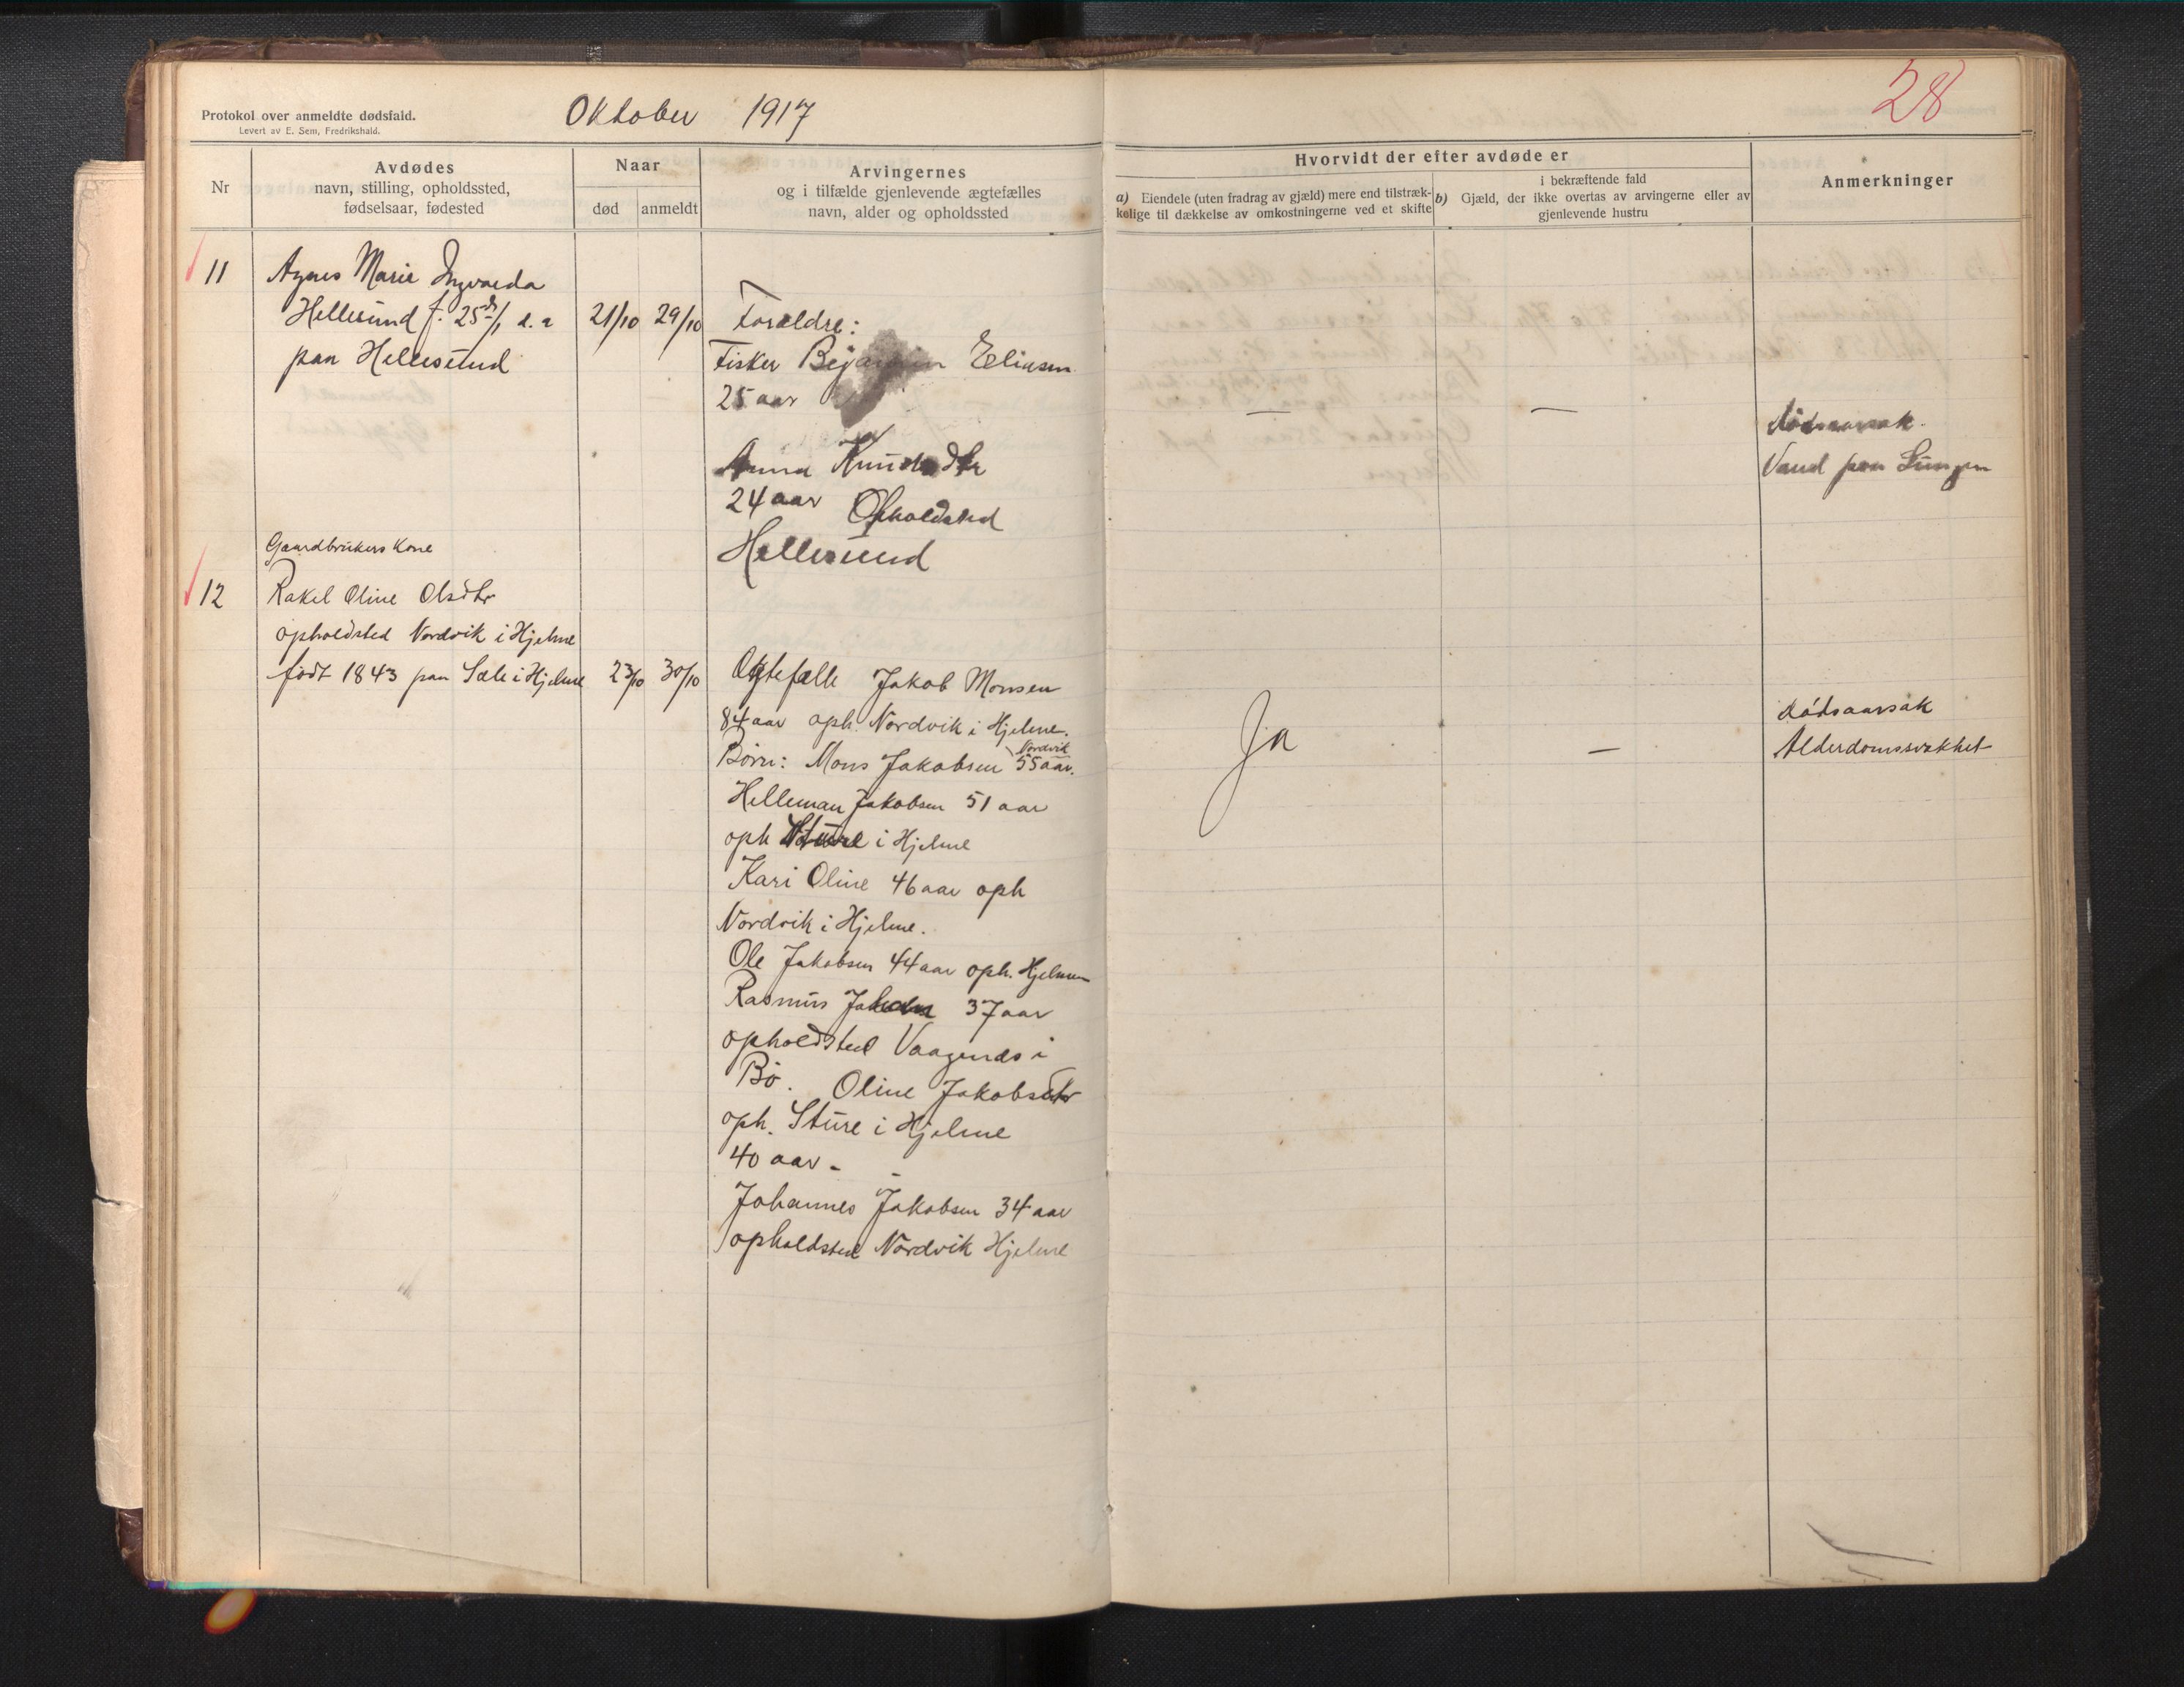 Protokol over anmeldte dødsfald.
Levert av E. Sem, Fredrikshald.
Oktober 1917
28
Nr
Avdødes
navn, stilling, opholdssted,
fødselsaar, fødested
Naar
død
anmeldt
Arvingernes
og i tilfælde gjenlevende ægtefælles
navn, alder og opholdssted
Hvorvidt der efter avdøde er
a) Eiendele (uten fradrag av gjæld) mere end tilstræk-
kelige til dækkelse av omkostningerne ved et skifte
i bekræftende fald
b) Gjæld, der ikke overtas av arvingerne eller av
gjenlevende hustru
Anmerkninger
11
Agnes Marie Ingvarda
Hellesund f. 25de/1 d. a
paa Hellesund
21/10
29/10
Foraeldre:
Fisker Bejamin Eliasen
25 aar
Anna Knudsdtr
24 aar Opholdsted
Hellesund
—
—
dødsaarsak.
Vand paa Lungen
Gaardbrukers Kone
12
Rakel Oline Olsdtr
opholdsted Nordvik i Hjelme
født 1843 paa Sæle i Hjelme
23/10
30/10
Ægtefælle Jakob Monsen
84 aar oph. Nordvik i Hjelme.
Nordvik
Børn: Mons Jakobsen 55 aar.
Helleman Jakobsen 51 aar
oph Sture i Hjelme
Kari Oline 46 aar oph
Nordvik i Hjelme.
Ole Jakobsen 44 aar oph. Hjelmen
Rasmus Jakobsen 37 aar
opholdsted Vaagenæs i
Bø. Oline Jakobsdtr
oph. Sture i Hjelme
40 aar -
Johannes Jakobsen 34 aar
opholdsted Nordvik Hjelme
Ja
—
dødsaarsak
Alderdomssvakhet